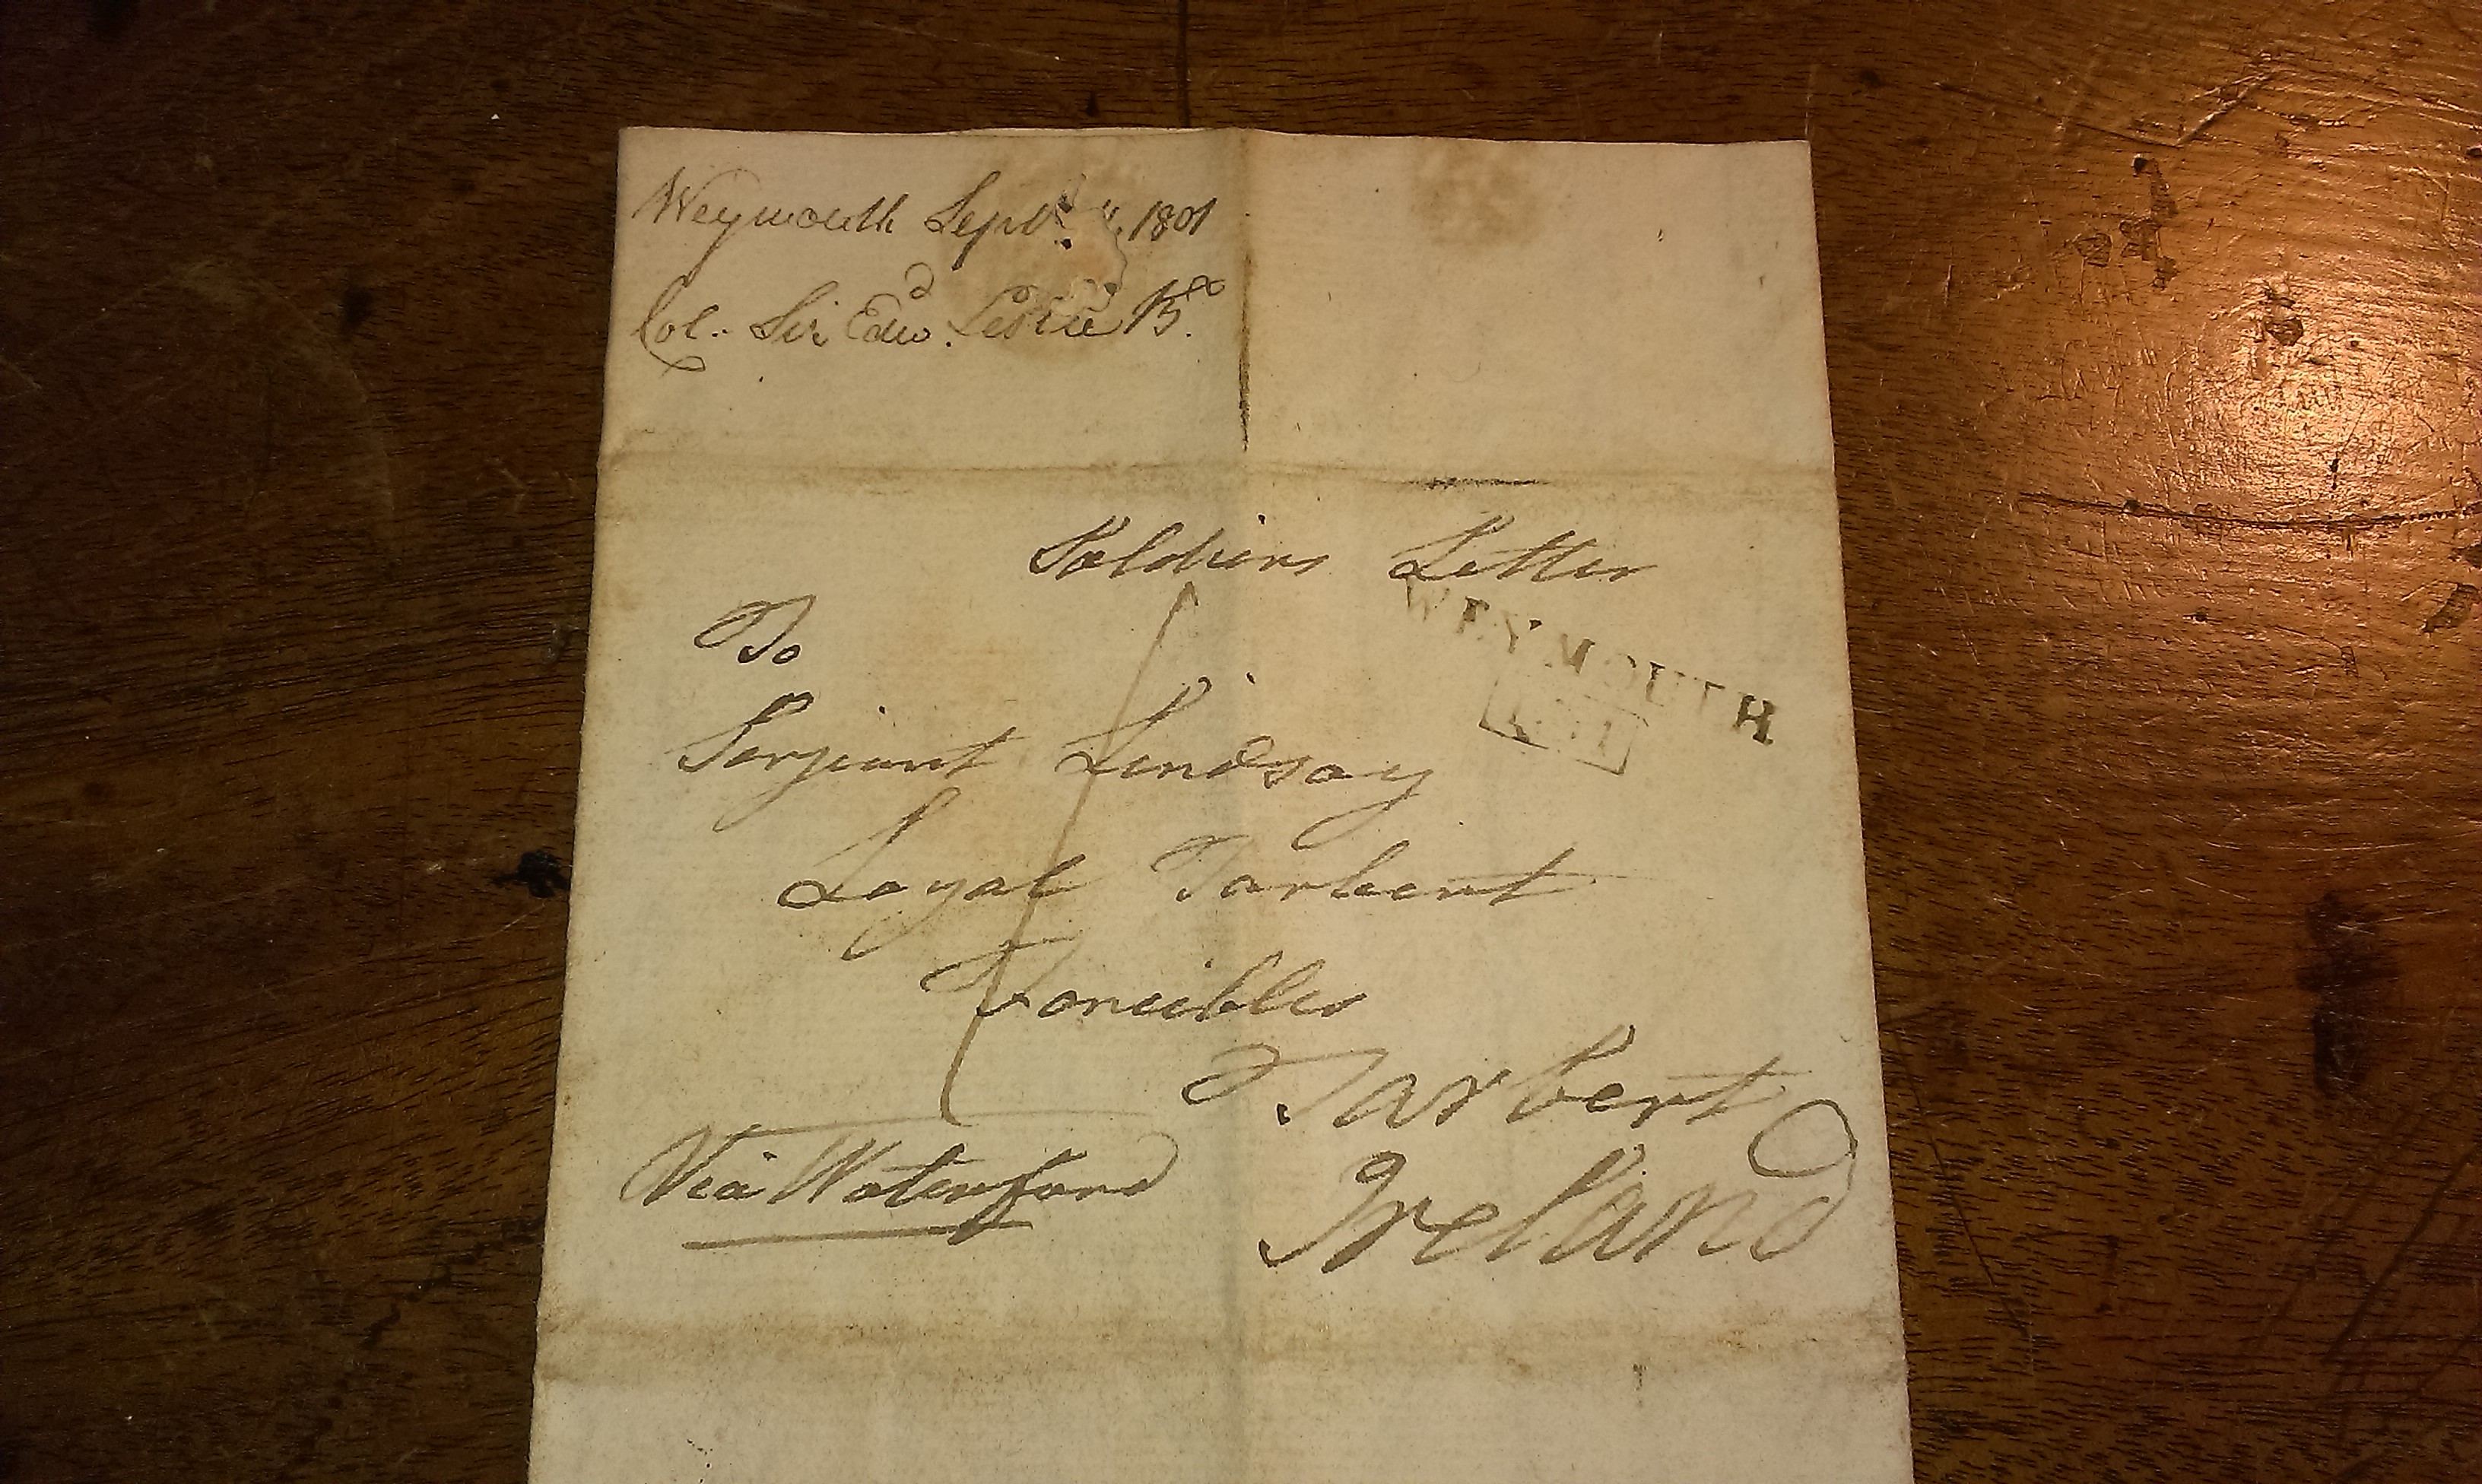 Weymouth Sepr. 1801
Col. Sir Edwd. Leslie Bt.
Soldiers Letter
WEYMOUTH
To
Serjeant Lindsay
Loyal Tarbert
Fencibles
Tarbert
Via Waterford
Ireland